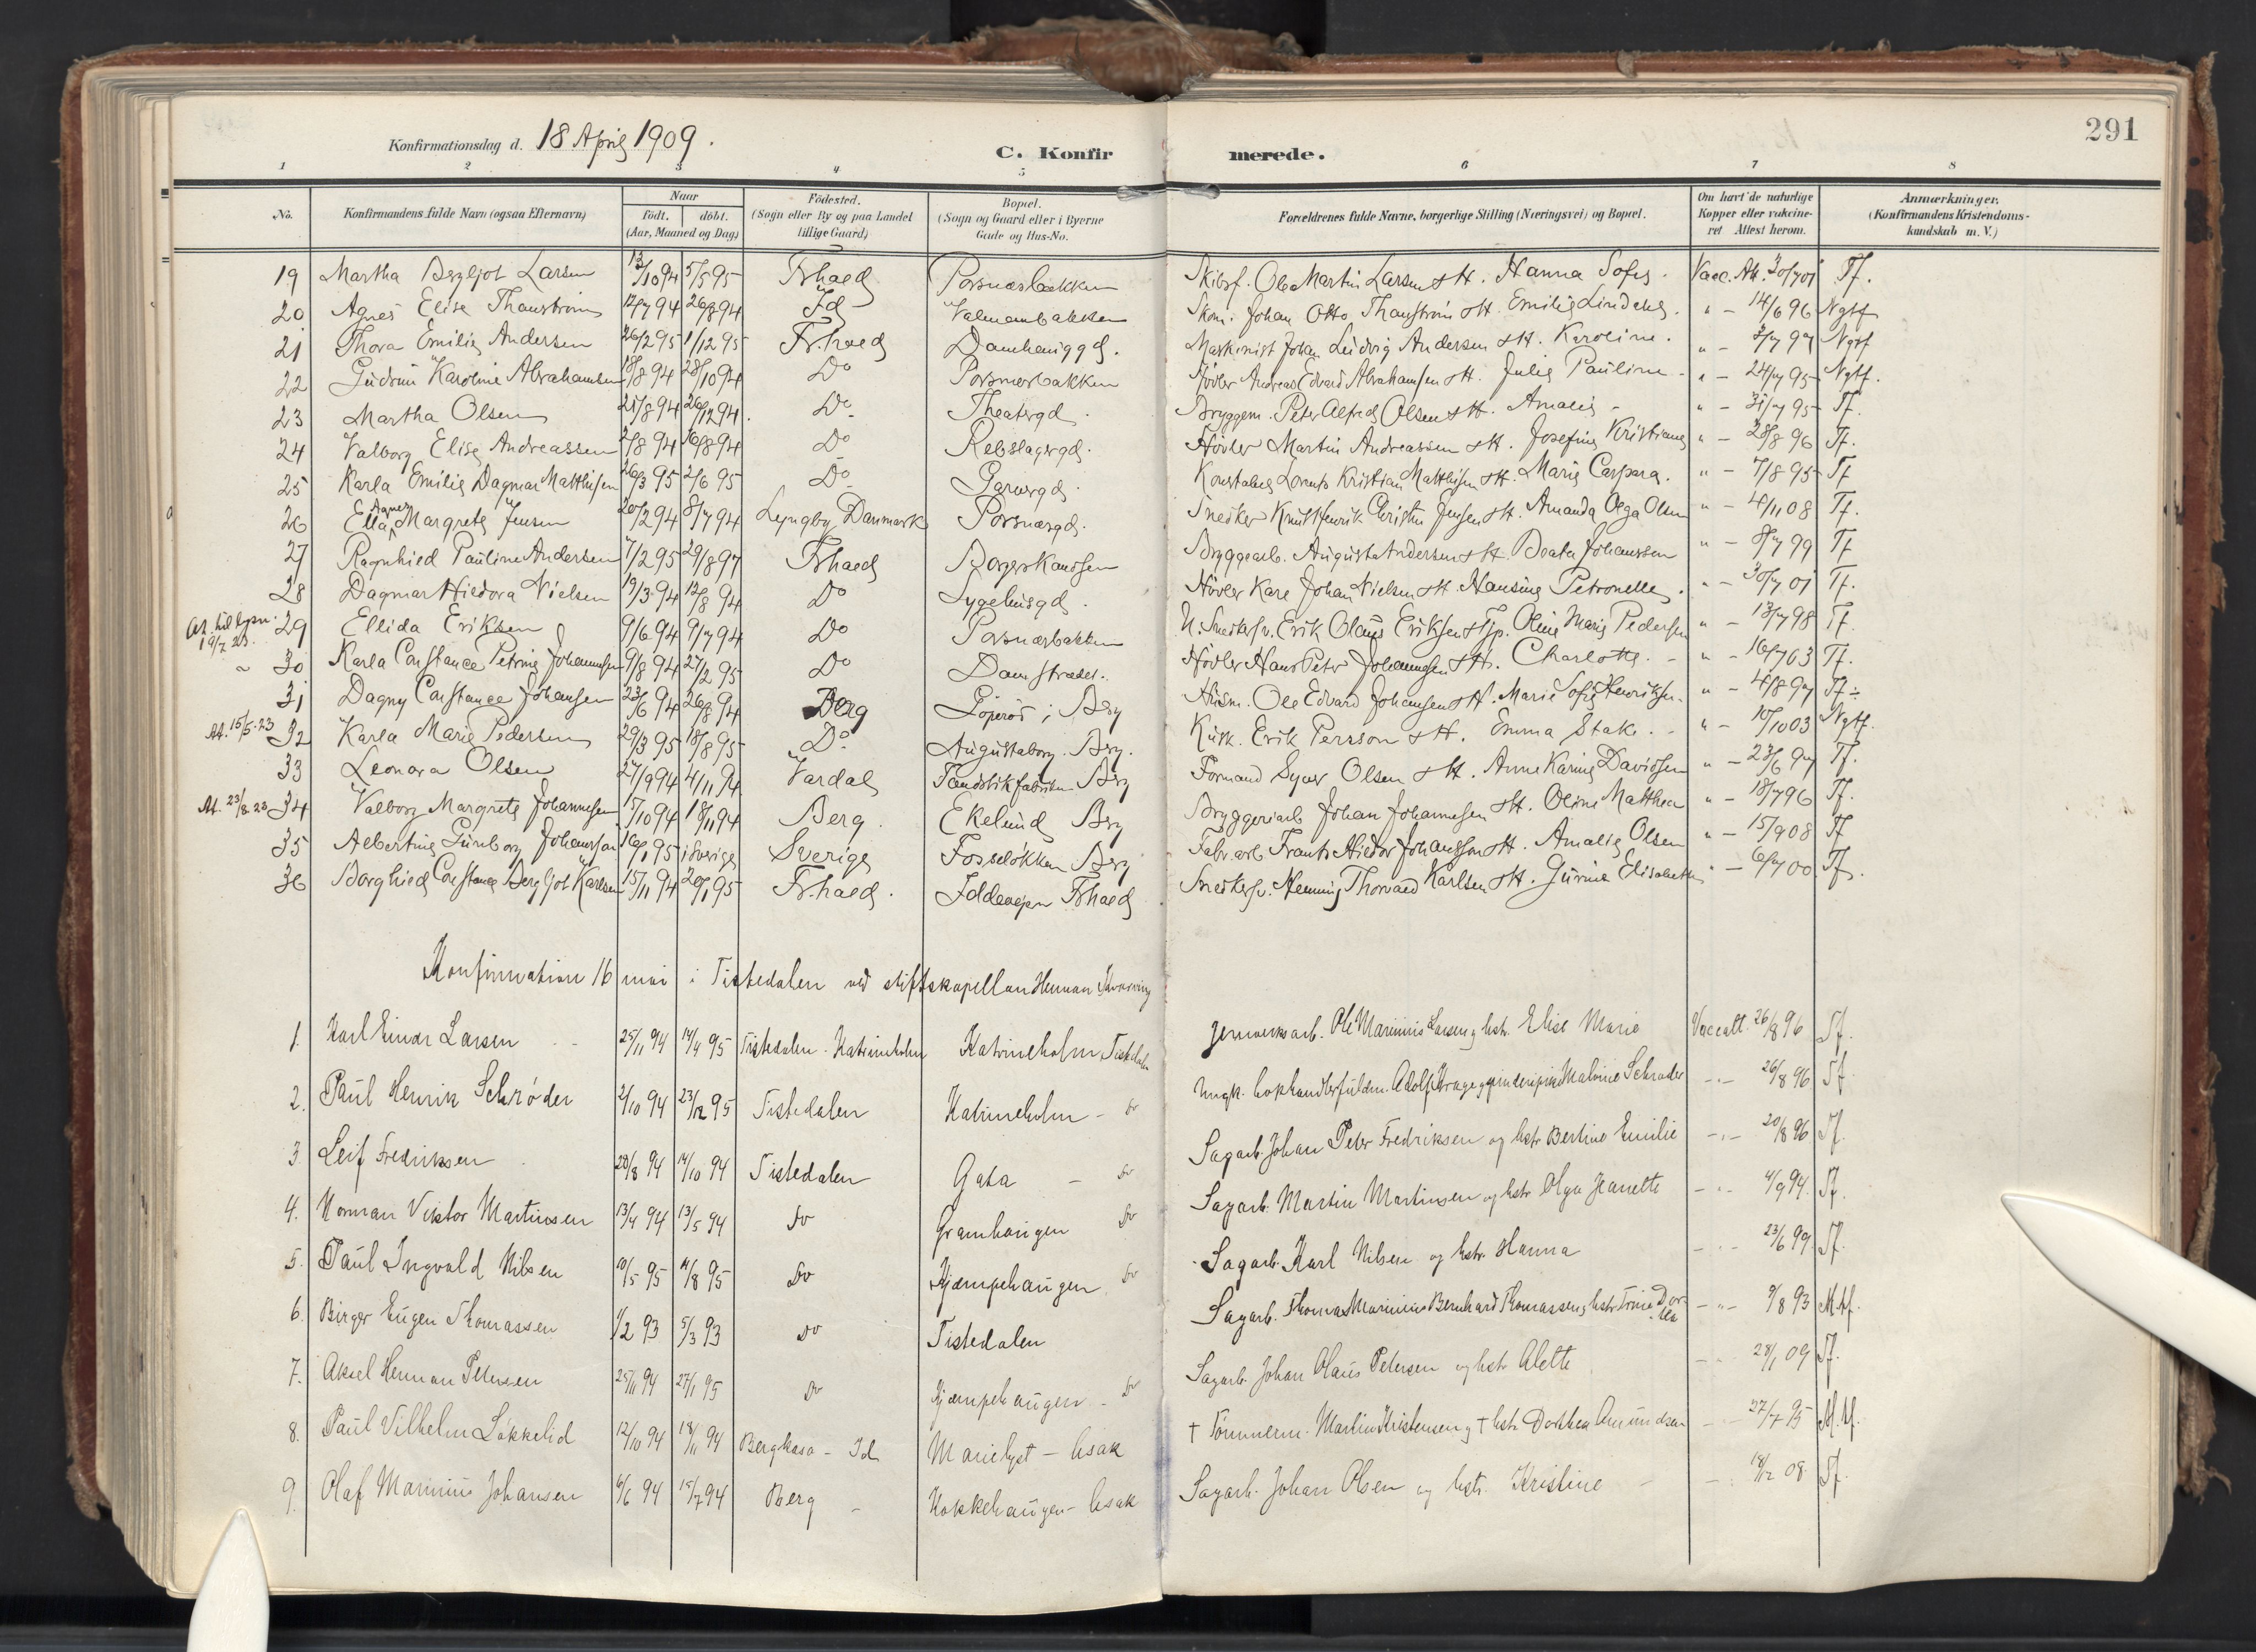 291
Konfirmationsdag d. 18 April 1909.
C. Konfirmerede.
1 2 3 4 5 6 7 8
No. Konfirmandens fulde Navn (ogsaa Efternavn) Naar födt. döbt. (Aar, Maaned og Dag) Födested. (Sogn eller By og paa Landet tillige Gaard) Bopæl. (Sogn og Gaard eller i Byerne Gade og Hus-No. Forældrenes fulde Navne, borgerlige Stilling (Næringsvei) og Bopæl. Om havt de naturlige Kopper eller vakcineret Attest herom. Anmærkninger. (Konfirmandens Kristendomskundskab m. V.)
19 Martha Bergljot Larsen 13/10 94 5/5 95 Frhald Porsnæsbakken Skibsf. Ole Martin Larsen & H. Hanna Sofie. Vacc. Att. 30/7 01 Tf.
20 Agnes Elise Thanström 12/7 94 26/8 94 Id Valmanbakken Skom. Johan Otto Thanström & H. Emilie Lindahl. " - 14/6 96 Ngtf
21 Thora Emilie Andersen 26/2 95 1/12 95 Fr.hald Damhauggd. Maskinist Johan Ludvig Andersen & H. Karoline. " - 3/7 97 Ngtf
22 Gudrun Karoline Abrahamsen 18/8 94 28/10 94 Do Porsnæsbakken Høvler Andreas Edvard Abrahamsen & H. Julie Pauline - " - 24/7 95 Ngtf.
23 Martha Olsen 25/8 94 26/12 94. Do Theatergd. Bryggem. Peter Alfred Olsen & H. Amalie - " - 31/7 95 Tf.
24 Valborg Elise Andreassen 2/8 94 16/8 94 Do Rebslagergd. Høvler Martin Andreassen & H. Josefine Kristiane " - 28/8 96 Tf.
25 Karla Emilie Dagmar Matthisen 26/3 95 2/6 95 Do Garvergd. Konstabel Lorents Kristian Matthisen & H. Marie Caspara. " - 7/8 95 Tf
26 Ella Agnes Margrete Jensen 20/2 94 8/7 94 Lyngby Danmark Porsnæsgd. Snedker Knutt Henrik Christen Jensen & H. Amanda Olga Olsen " - 4/11 08 Tf.
27 Ragnhild Pauline Andersen 7/2 95 29/8 97 Frhald Borgerskansen Bryggearb. August Andersen & H. Beate Johanssen " - 8/7 99 Tf
28 Dagmar Hildora Nielsen 19/3 94 12/8 94 Do Sygehusgd. Høvler Karl Johan Nielsen & H. Hansine Petronelle. " - 30/7 01 Tf.
19/7 23. 29 Ellida Eriksen 9/6 94 9/7 94 Do Porsnæsbakken U. Snedkersv. Erik Olaus Eriksen & Tjp. Oline Marie Pedersen " - 13/7 98 Tf.
30 Karla Constance Petrine Johannesen 9/8 94 27/2 95 Do Damstrædet. Høvler Hans Peter Johannesen & H. Charlotte. - " - 16/7 03 Tf.
31 Dagny Constance Johansen 23/6 94 26/8 94 Berg i Berg Husm. Ole Edvard Johansen & H. Marie Sofie Henriksen. " - 4/8 97 Tf ÷
At. 15/5 23 32 Karla Marie Pedersen 29/3 95 18/8 95 Do Augustaborg. Berg. Kusk. Erik Persson & H. Emma Stake. - " - 10/10 03 Ngtf.
33 Leonora Olsen 27/9 94 4/11 94 Vardal Fandstikfabriken Berg Formand Syver Olsen & H. Anne Karine Davidsen " - 23/6 97 Tf.
At. 23/8 23 34 Valborg Margrete Johannesen 15/10 94 18/11 94 Berg. Ekelund Berg Bryggeriarb. Johan Johannesen & H. Oline Matthea " - 18/7 96 Tf.
35 Albertine Gunborg Johansson 16/1 95 i Sverige Sverige Fosseløkken Berg Fabr. arb. Frants Hildor Johansson & H. Amalie Olsen " - 15/9 08 Tf
36 Borghild Constance Bergljot Karlsen 15/11 94 20/1 95 Fr.hald. Iddevejen Frhald Snedkersv. Henning Thorvald Karlsen & H. Gurine Elisabeth " - 6/7 00 Tf.
Konfirmation 16 mai i Tistedalen ved stiftskapellan Herman
1. Karl Einar Larsen 25/11 94 14/4 95 Tistedalen - Katrineholm Katrineholm Tistedalen Jernverksarb. Ole Marinius Larsen og hstr. Elise Marie Vaccatt. 26/8 96 Tf.
2. Paul Henrik Schrøder 2/10 94 23/12 95 Tistedalen Katrineholm - do Ungk. bokhandlerfuldm. Adolf Krage og pinderipike Malvine Schrøder -"- 26/8 96 Tf
3. Leif Fredriksen 20/8 94 14/10 94 Tistedalen Gata - do Sagarb. Johan Peter Fredriksen og hstr. Bertine Emilie -"- 20/8 96 Tf.
4. Herman Viktor Martinsen 13/4 94 13/5 94 do Granhaugen do Sagarb. Martin Martinsen og hstr. Olga Jeanette -"- 4/9 94. Tf.
5. Paul Ingvald Nilsen 10/5 95 11/8 95 do Kjæmpehaugen do Sagarb. Karl Nilsen og hstr. Hanna -"- 23/6 99 Tf.
6. Birger Eugen Thomassen 1/2 93 5/3 93 do Tistedalen Sagarb. Thomas Marinius Bernhard Thomassen og hstr. Trine Dorthea -"- 9/8 93 M.tf.
7. Aksel Herman Petersen 25/11 94 27/1 95 do Kjæmpehaugen - do Sagarb. Johan Olaus Petersen og hstr. Alette -"- 28/1 09 Tf.
8. Paul Vilhelm Løkkelid 12/10 94 18/11 94 Bergkasa - Id Marielyst - hsak † Tømmerm. Martin Kristensen og † hstr. Dorthea Amundsen -"- 27/7 95 M.tf.
9. Olaf Marinius Johansen 6/6 94 15/7 94 Berg - Kokkehaugen - hsak Sagarb. Johan Olsen og hstr. Kristine - -"- 18/12 08. Tf.